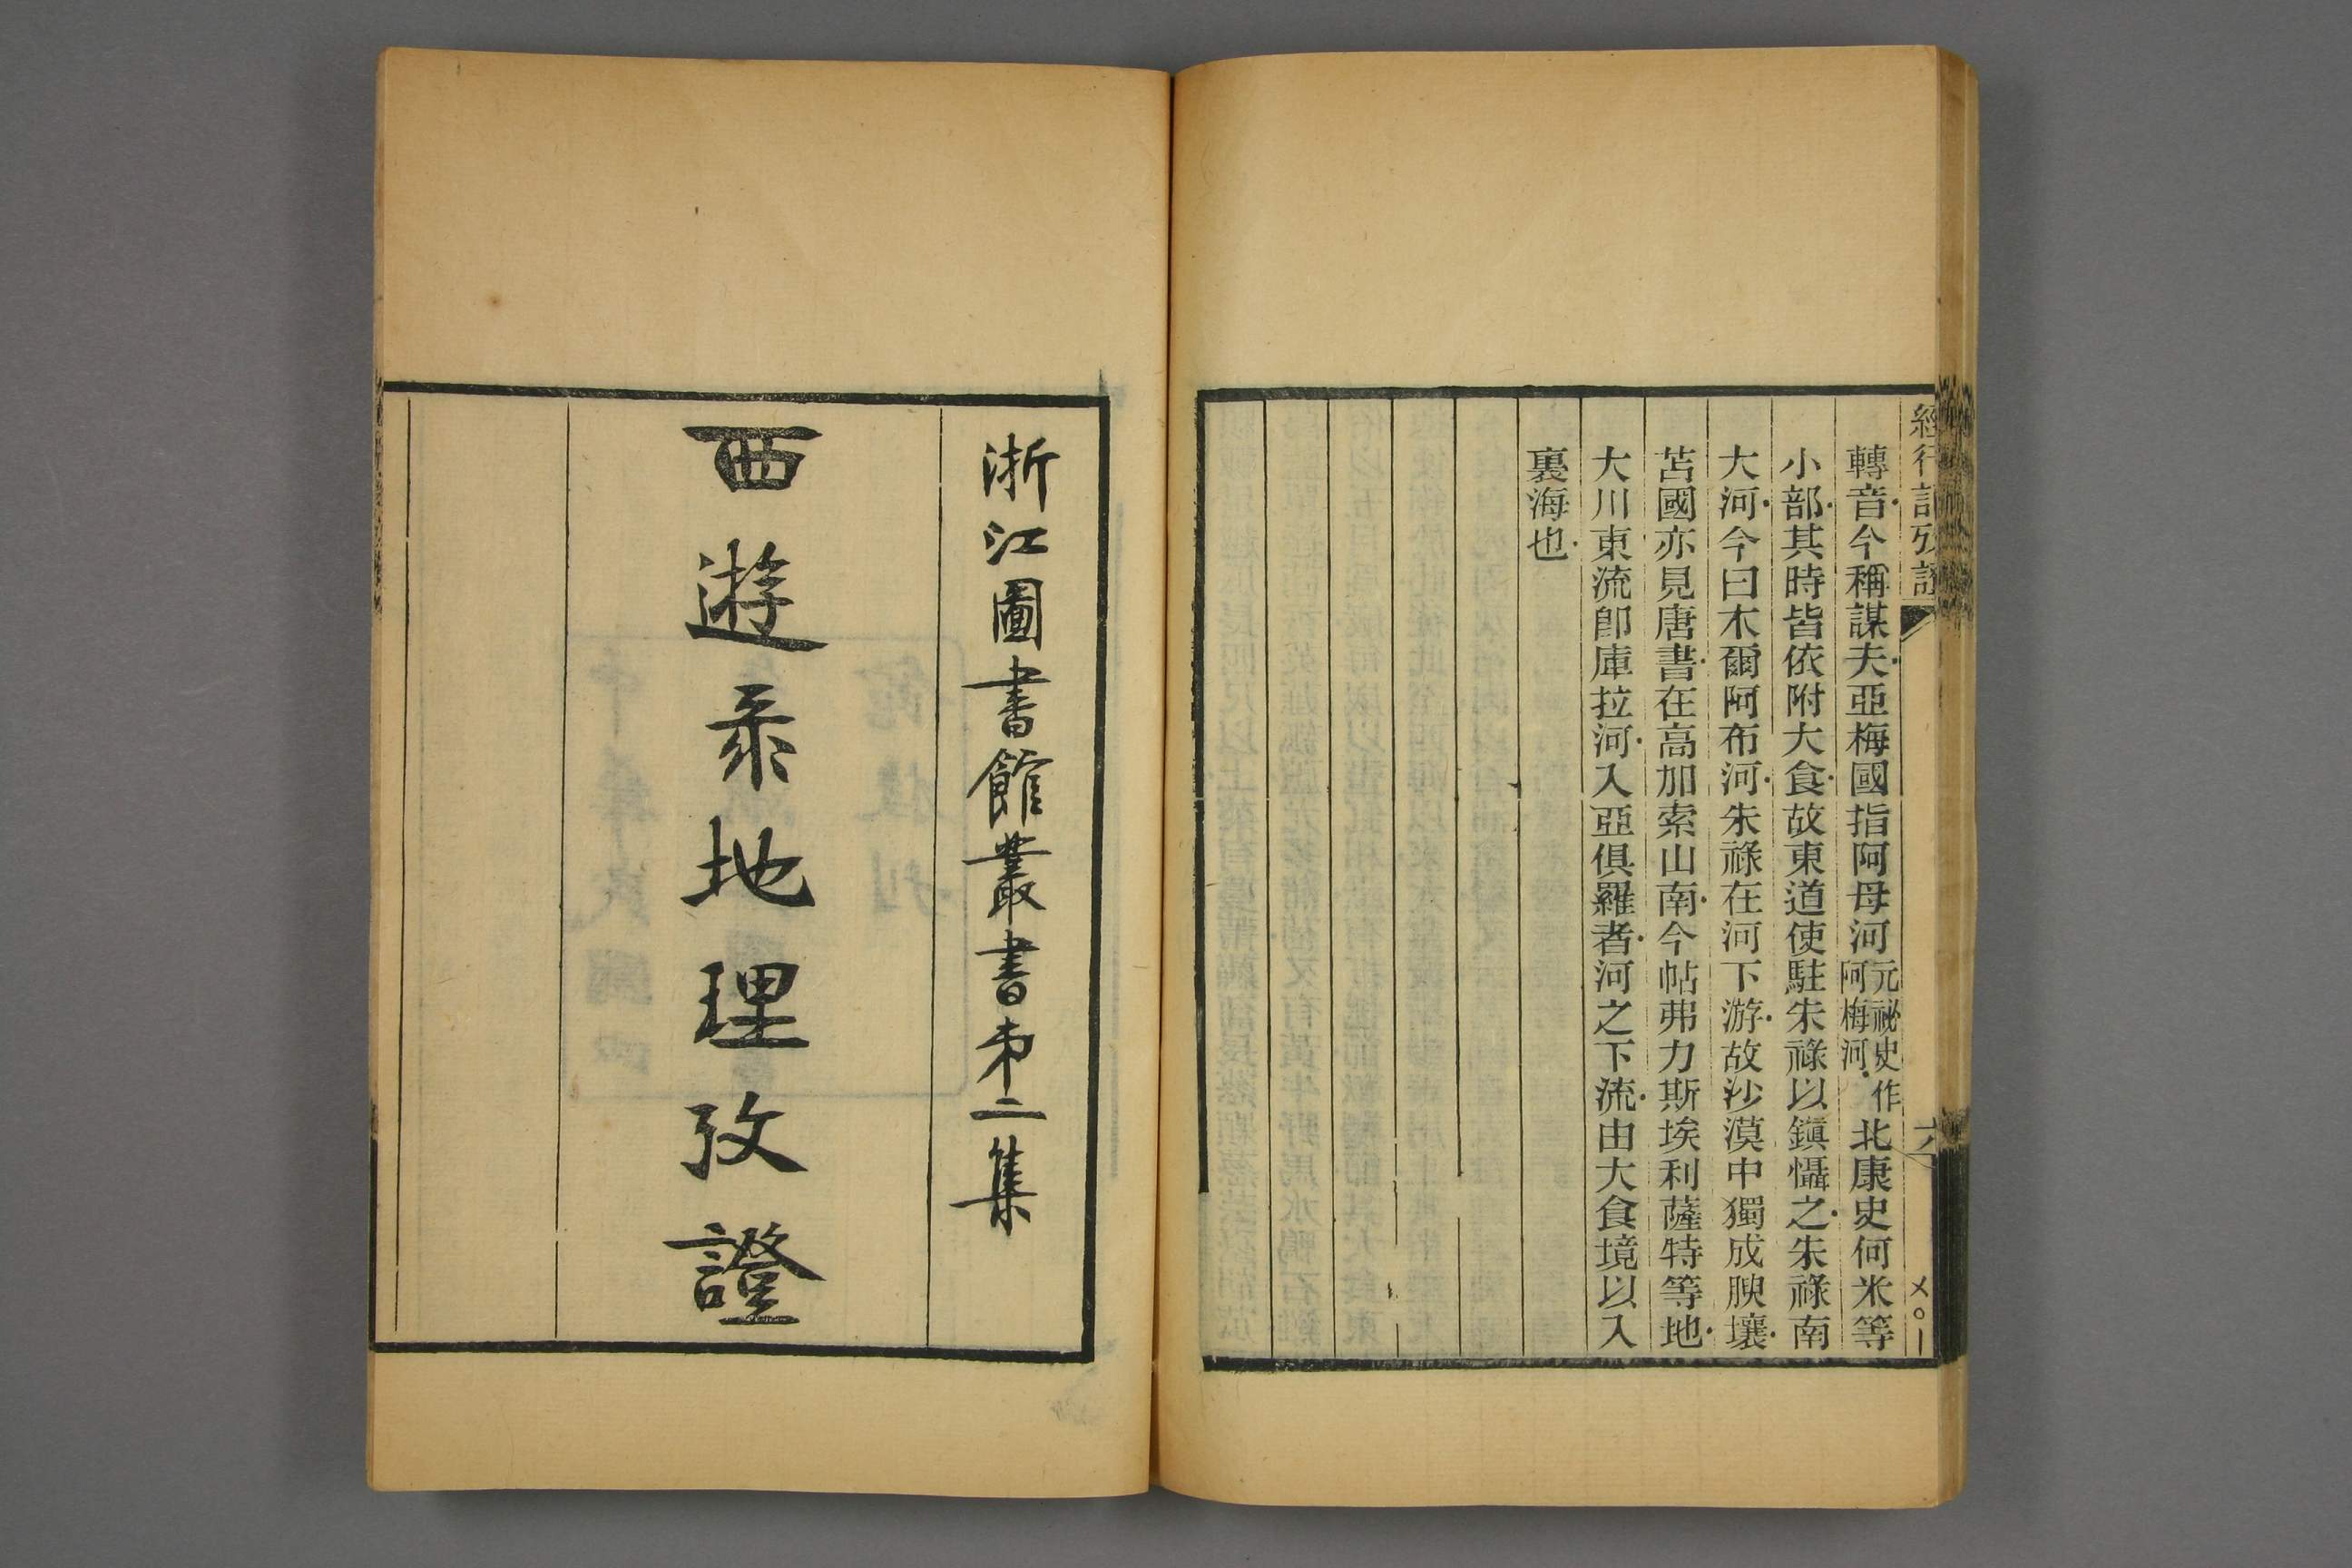 經行記攷證
六
〤〇〡
轉音今稱謀夫亞梅國指阿母河元祕史作阿梅河北康史何米等
小部其時皆依附大食故東道使駐朱祿以鎭懾之朱祿南
大河今曰木爾阿布河朱祿在河下游故沙漠中獨成腴壤
苫國亦見唐書在高加索山南今帖弗力斯埃利薩特等地
大川東流卽庫拉河入亞俱羅者河之下流由大食境以入
裏海也
浙江圖書館叢書弟二集
西遊彔地理攷證